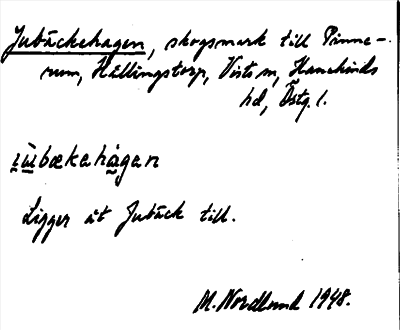 Jubäckehagen, skogsmark till Pinne-
rum, Hällingstorp, Vists sn, Hanekinds
hd, Östg. l.
ı̰ṳ̀bækahà̰gan
Ligger åt Jubäck till.
M. Nordlund 1948.